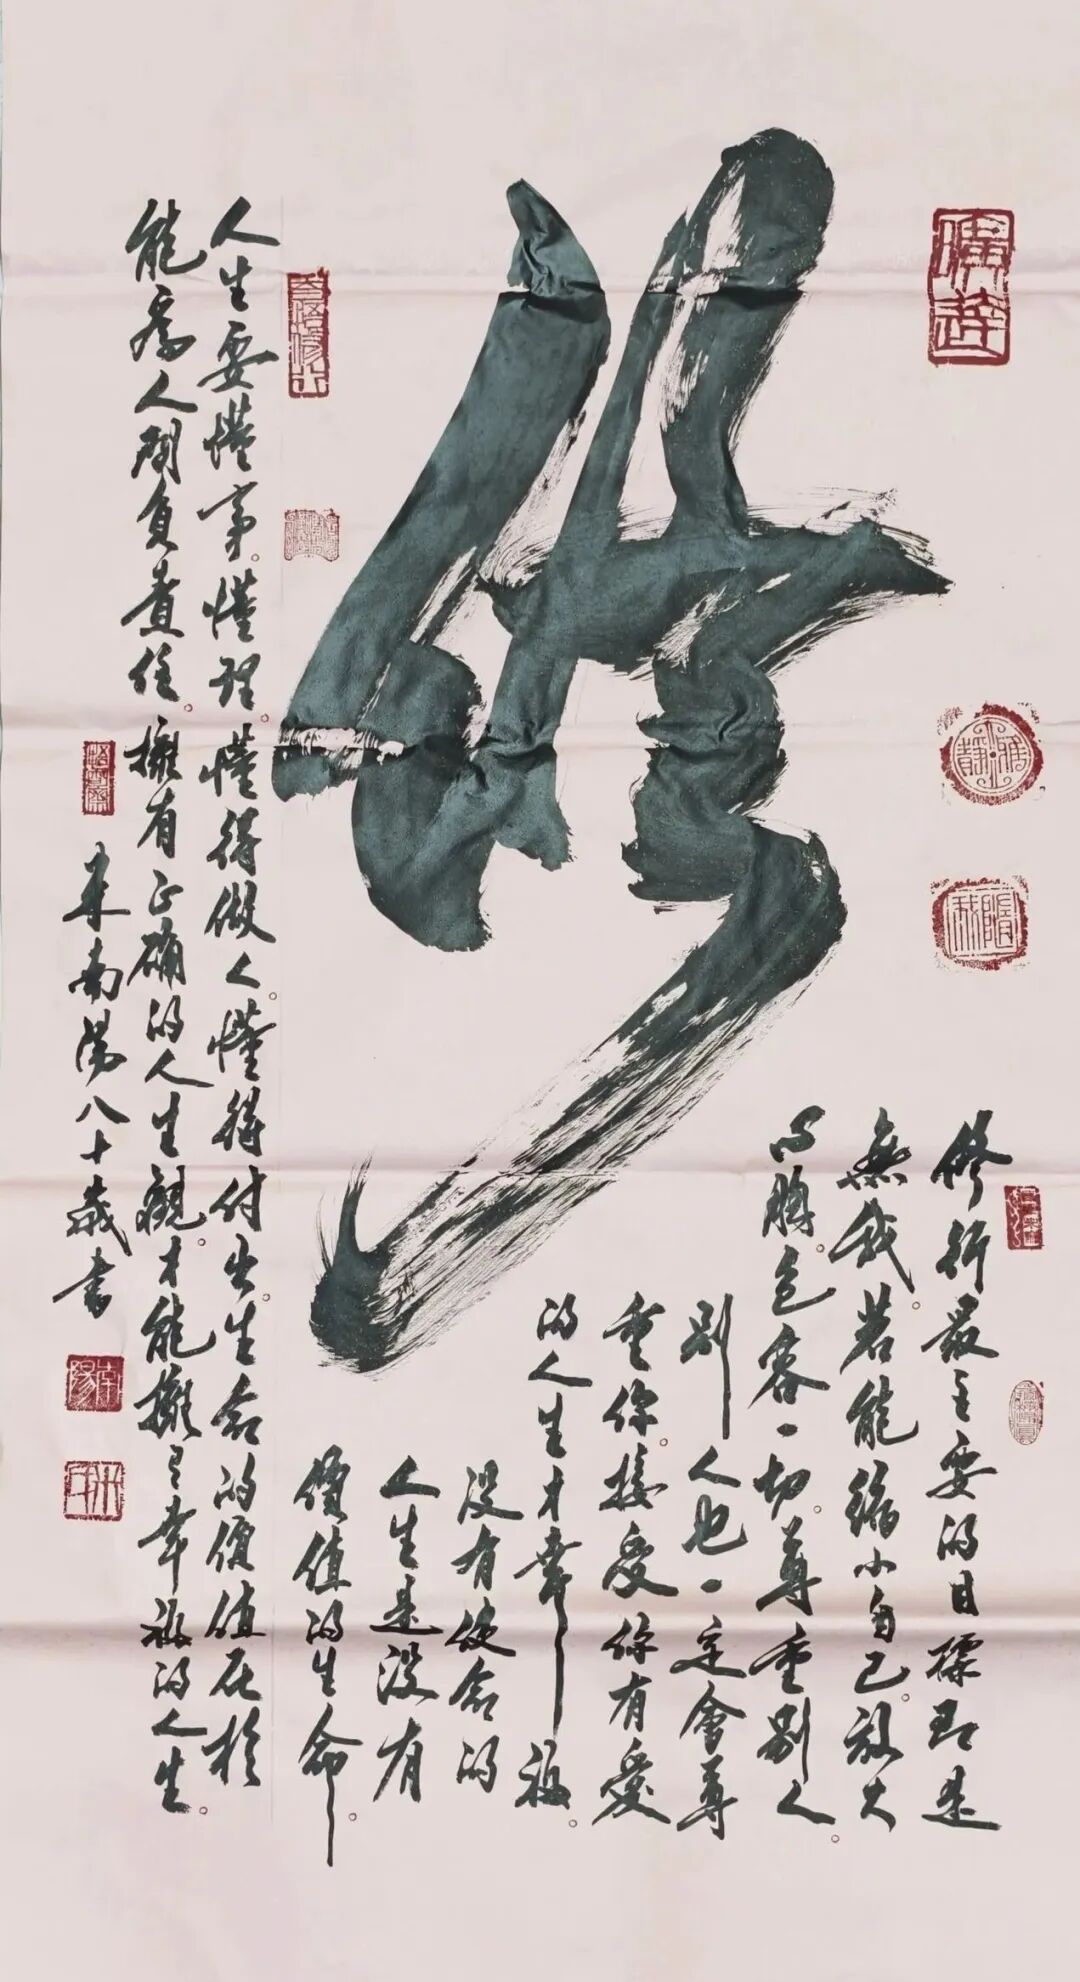 修行最主要的目標即是
無我。若能縮小自己。放大
心胸。包容一切。尊重別人。
別人也一定會尊
重你。接受你有愛
的人生才幸福。
没有使命的
人生是没有
價值的生命。
人生要懂事。懂理。懂得做人。懂得付出。生命的價值在於
能為人間負責任。擁有正確的人生觀。才能擁有幸福的人生。
米南陽八十歲書
南陽